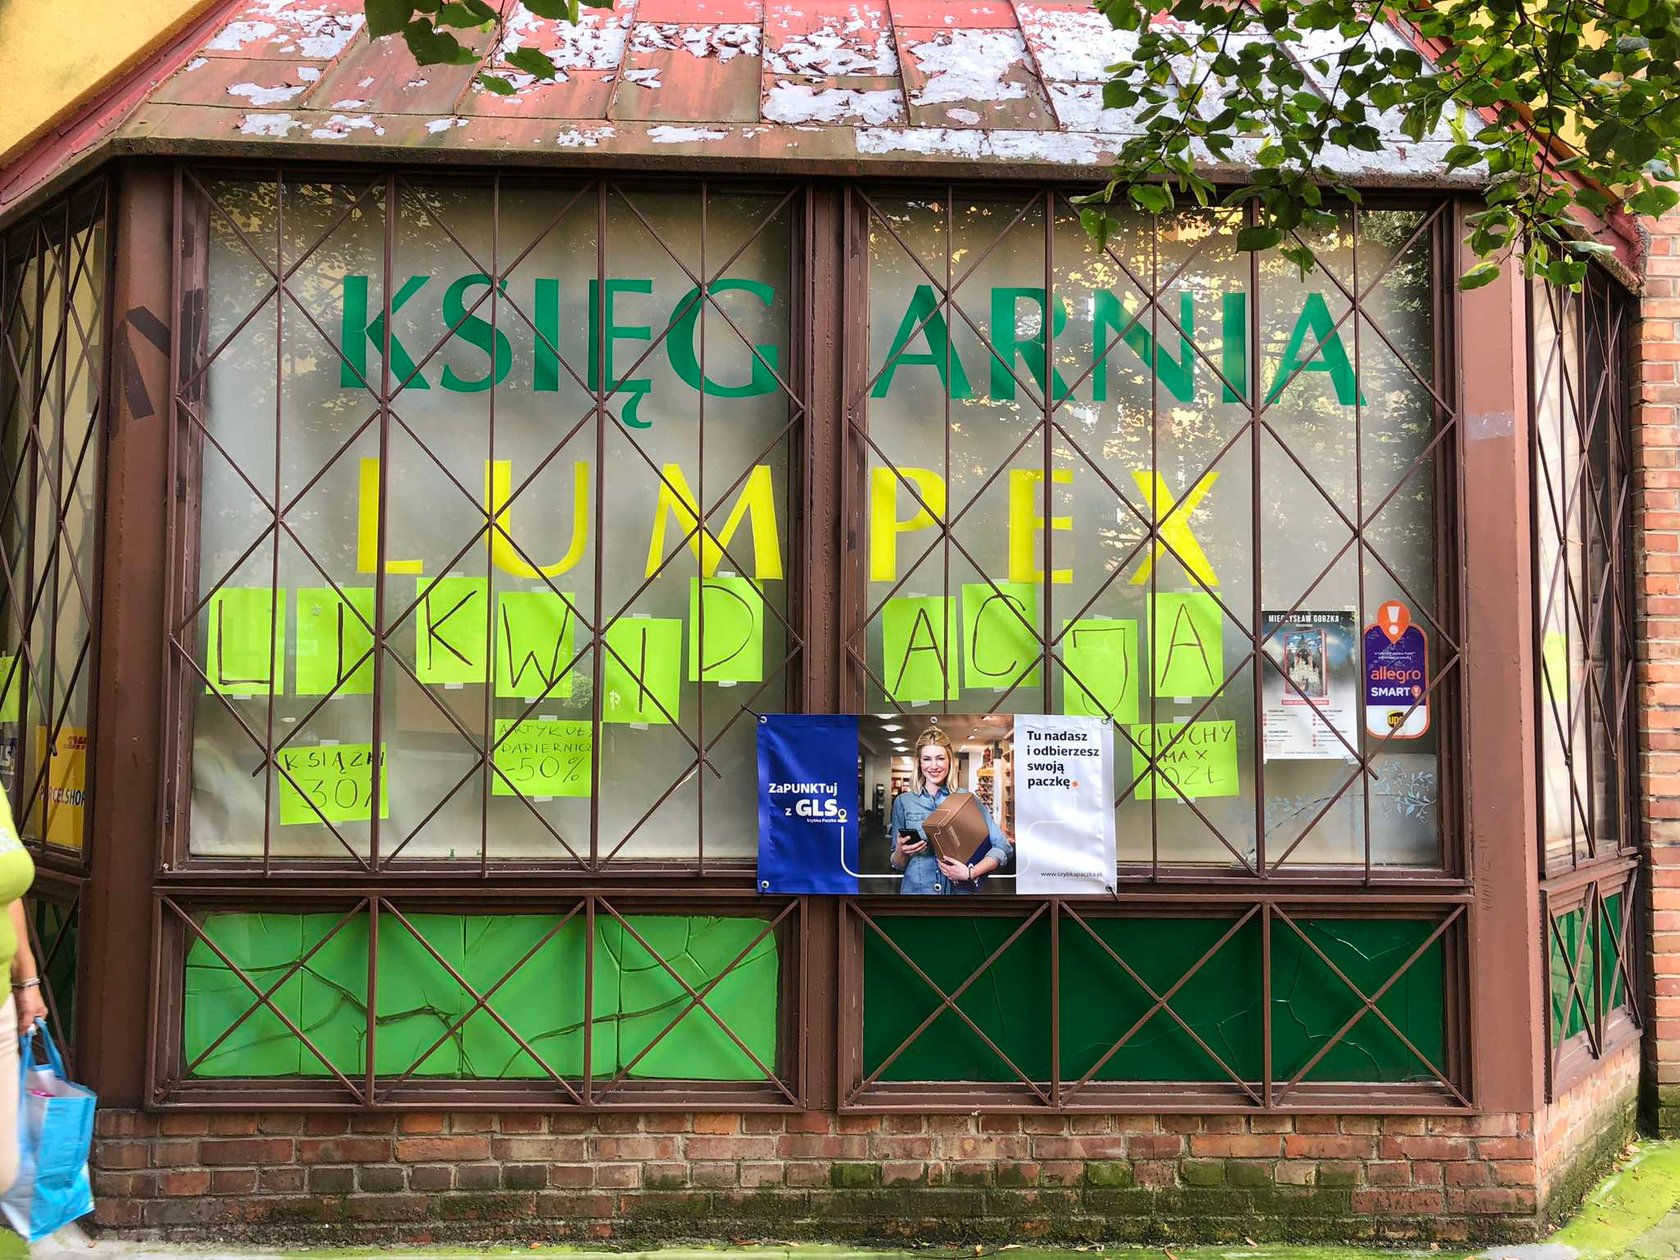 KSIĘGARNIA
LUMPEX
LIKWIDACJA
KSIĄŻKI
30%
ARTYKUŁY
PAPIERNICZ
-50%
CIUCHY
MAX
ZaPUNKTuj
z GLS
Szybka Paczka
Tu nadasz
i odbierzesz
swoją
paczkę.
www.szybkapaczka.pl
MIECZYSŁAW GORZKA
allegro
SMART!
ups
DHL